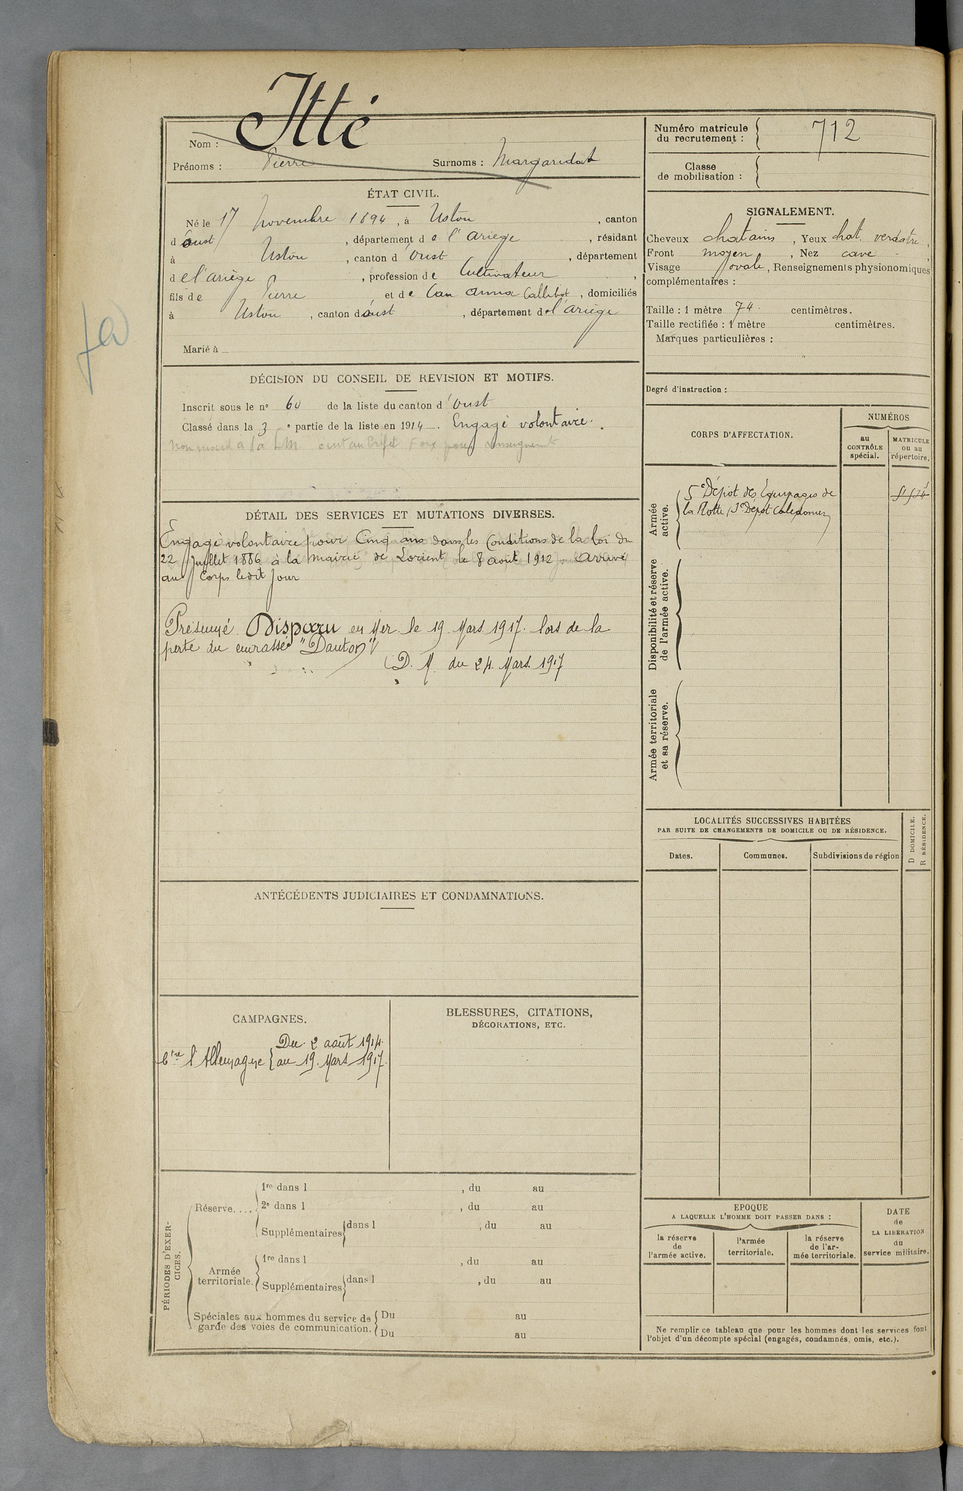 Itté
Nom :
Prénoms : Pierre Surnoms : Margaridat
Numéro matricule du recrutement : 712
Classe de mobilisation :
ÉTAT CIVIL.
Né le 17 Novembre 1894, à Ustou, canton
d'oust, département de l'ariège, résidant
à Ustou, canton d'oust, département
de l'ariège, profession de Cultivateur
fils de Pierre et de Cau anna, domiciliés
à Ustou, canton d'oust, département de l'ariège
Marié à
SIGNALEMENT.
Cheveux chatains, Yeux chat. verdatre,
Front moyen, Nez cave
Visage ovale, Renseignements physionomiques
complémentaires :
Taille : 1 mètre 74 centimètres.
Taille rectifiée : 1 mètre centimètres.
Marques particulières :
Degré d'instruction :
DÉCISION DU CONSEIL DE REVISION ET MOTIFS.
Inscrit sous le n° 60 de la liste du canton d'oust
Classé dans la 3e partie de la liste en 1914. Engagé volontaire.
DÉTAIL DES SERVICES ET MUTATIONS DIVERSES.
Engagé volontaire pour Cinq ans dans les Conditions de la loi du
22 Juillet 1886 à la mairie de Lorient le 8 août 1912 arrivé
au Corps ledit jour
Présumé Disparu en Mer le 19 Mars 1917. lors de la
perte du cuirassé "Danton"
(D. M. du 24 Mars 1917
CORPS D'AFFECTATION.
NUMÉROS
au CONTRÔLE spécial.
MATRICULE ou au répertoire.
Armée active.
5e Dépot des Equipages de
la Flotte
Disponibilité et réserve de l'armée active.
Armée territoriale et sa réserve.
LOCALITÉS SUCCESSIVES HABITÉES
PAR SUITE DE CHANGEMENTS DE DOMICILE OU DE RÉSIDENCE.
Dates. Communes. Subdivisions de région
D DOMICILE.
R RÉSIDENCE.
ANTÉCÉDENTS JUDICIAIRES ET CONDAMNATIONS.
CAMPAGNES.
Ctre l'Allemagne { Du 2 août 1914
au 19 Mars 1917.
BLESSURES, CITATIONS,
DÉCORATIONS, ETC.
PÉRIODES D'EXERCICES.
Réserve.... 1re dans l , du au
2e dans l , du au
Supplémentaires dans l , du au
Armée territoriale. 1re dans l , du au
Supplémentaires dans l , du au
Spéciales aux hommes du service de Du au
garde des voies de communication. Du au
EPOQUE
A LAQUELLE L'HOMME DOIT PASSER DANS :
la réserve de l'armée active.
l'armée territoriale.
la réserve de l'armée territoriale.
DATE de LA LIBÉRATION du service militaire.
Ne remplir ce tableau que pour les hommes dont les services font
l'objet d'un décompte spécial (engagés, condamnés, omis, etc.).